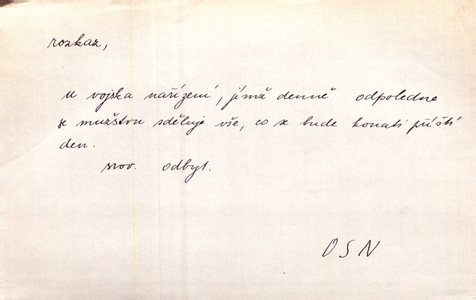 rozkaz,
u vojska nařízení, jímž denně odpoledne
se mužstvu sděluje vše, co x bude konati příští
den.
srov. odbyt.
OSN